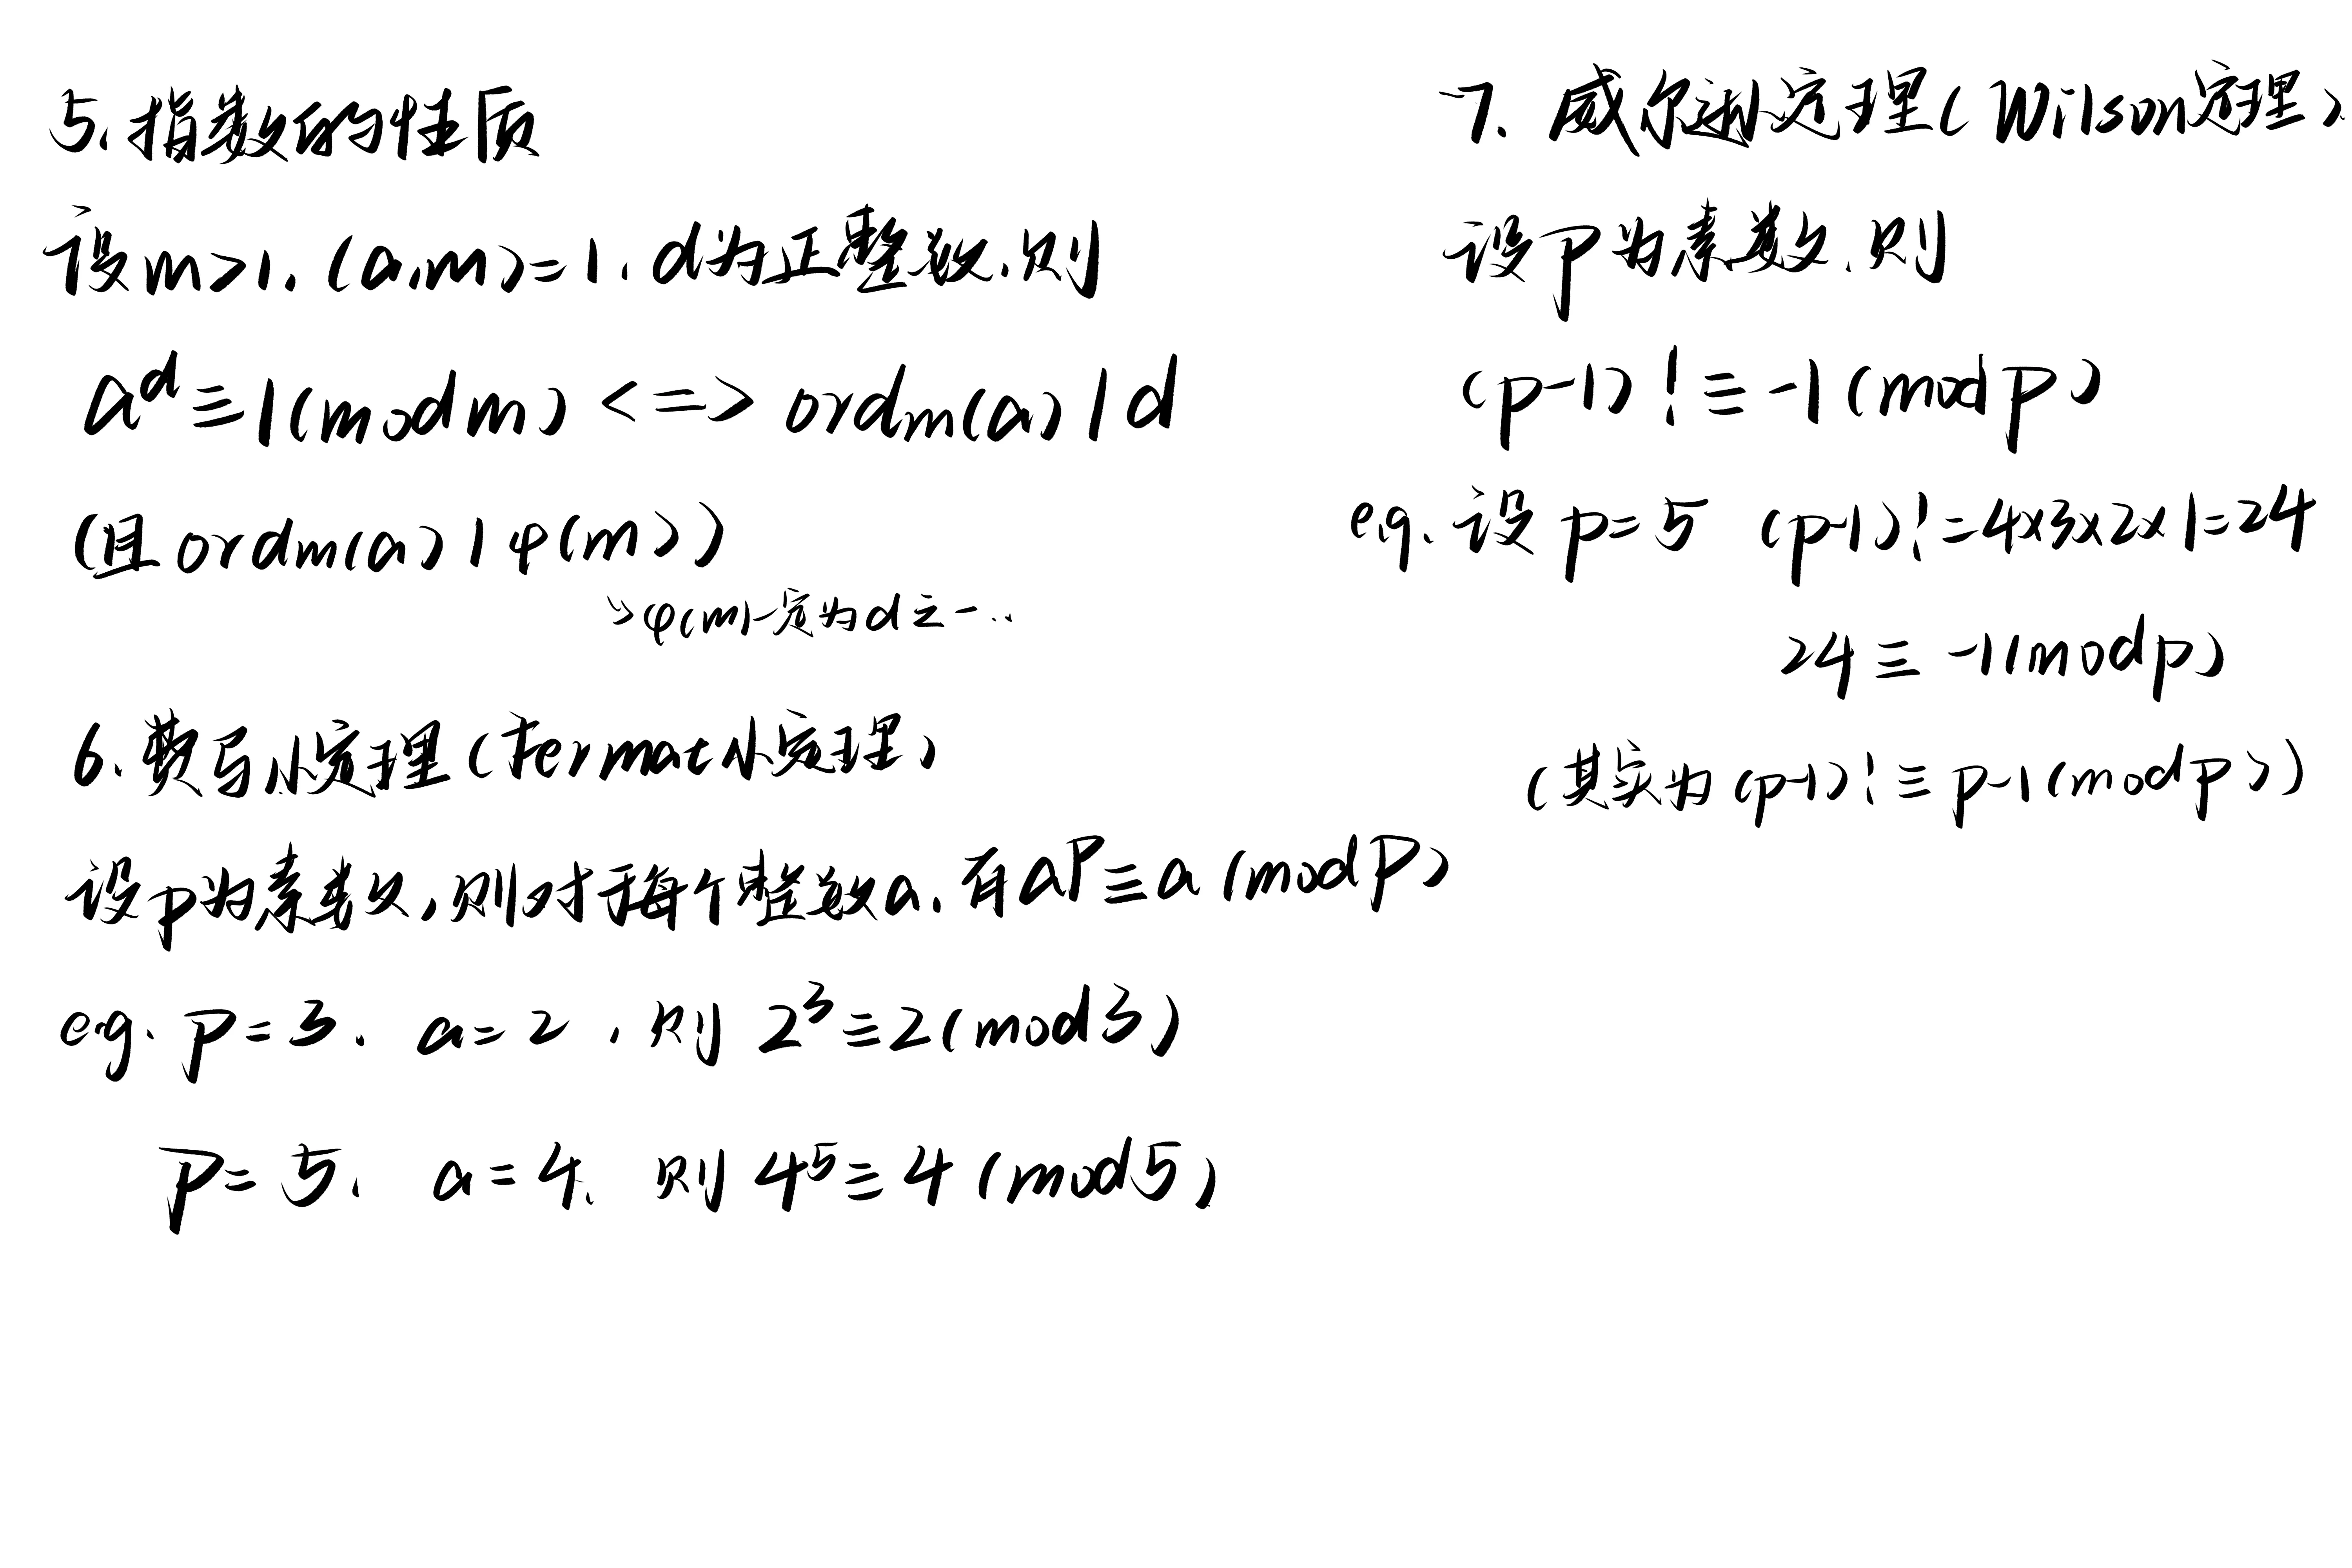 5. 指数的性质
设m>1. (a,m)=1. d为正整数.则
a^d≡1(mod m) <=> ordm(a) | d
(且 ordm(a) | φ(m))
>φ(m)一定为d之一...
6. 费马小定理(Fermat小定理)
设p为素数,则对每个整数a.有a^p≡a(mod p)
eg. p=3. a=2.则 2³≡2(mod3)
p=5. a=4. 则 4⁵≡4(mod5)
7. 威尔逊定理(Wilson定理)
设p为素数.则
(p-1)!≡-1(mod p)
eg. 设 p=5 (p-1)!=4×3×2×1=24
24≡-1(mod p)
(其实为(p-1)!≡p-1(mod p))